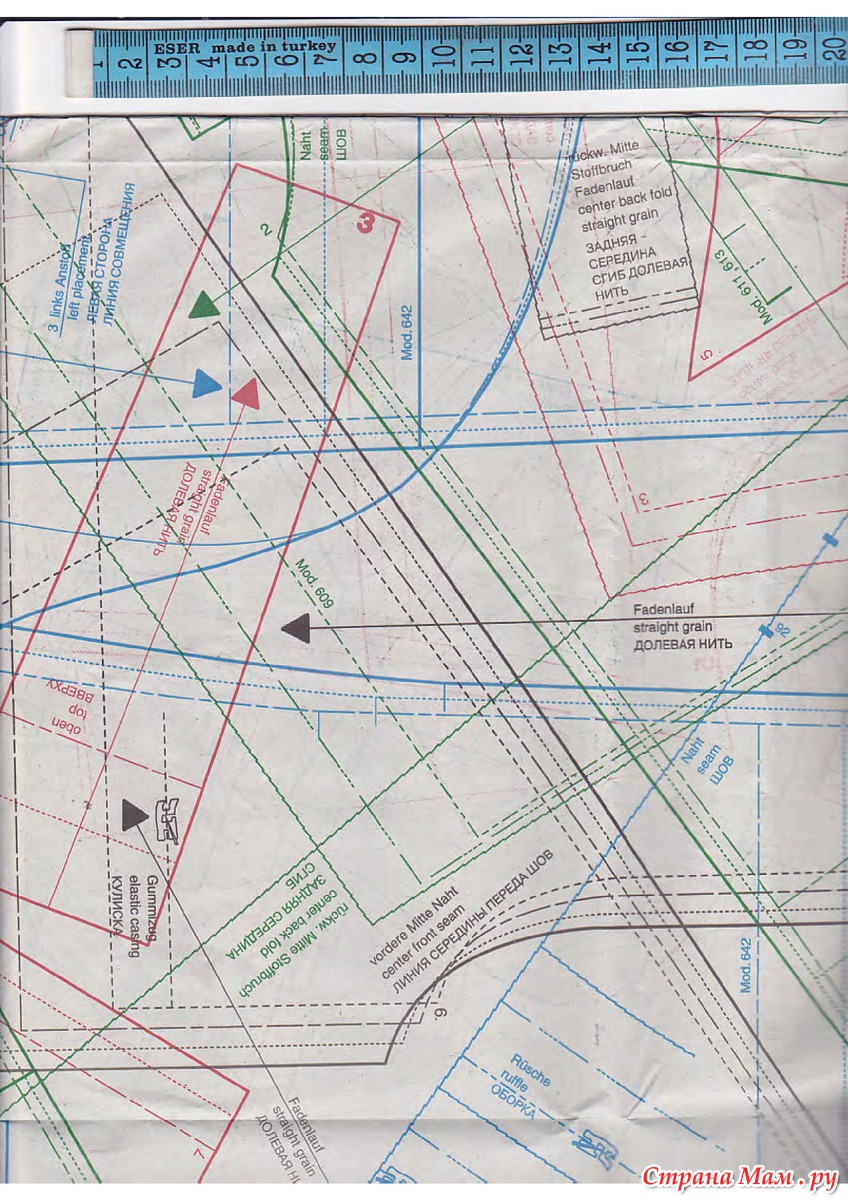 ESER made in turkey
1 2 3 4 5 6 7 8 9 10 11 12 13 14 15 16 17 18 19 20
Naht
seam
ШОВ
rückw. Mitte
Stoffbruch
Fadenlauf
center back fold
straight grain
ЗАДНЯЯ –
СЕРЕДИНА
СГИБ ДОЛЕВАЯ
НИТЬ
3
2
3 links Anstoß
left placement
ЛЕВАЯ СТОРОНА
ЛИНИЯ СОВМЕЩЕНИЯ
Mod. 642
Mod. 611, 613
5
Fadenlauf
straight grain
ДОЛЕВАЯ НИТЬ
3
Mod. 609
Fadenlauf
straight grain
ДОЛЕВАЯ НИТЬ
oben
top
ВВЕРХУ
Naht
seam
ШОВ
Gummizug
elastic casing
КУЛИСКА
rückw. Mitte Stoffbruch
center back fold
ЗАДНЯЯ СЕРЕДИНА
СГИБ
vordere Mitte Naht
center front seam
ЛИНИЯ СЕРЕДИНЫ ПЕРЕДА ШОВ
6
Mod. 642
Rüsche
ruffle
ОБОРКА
Fadenlauf
straight grain
7
Страна Мам.ру